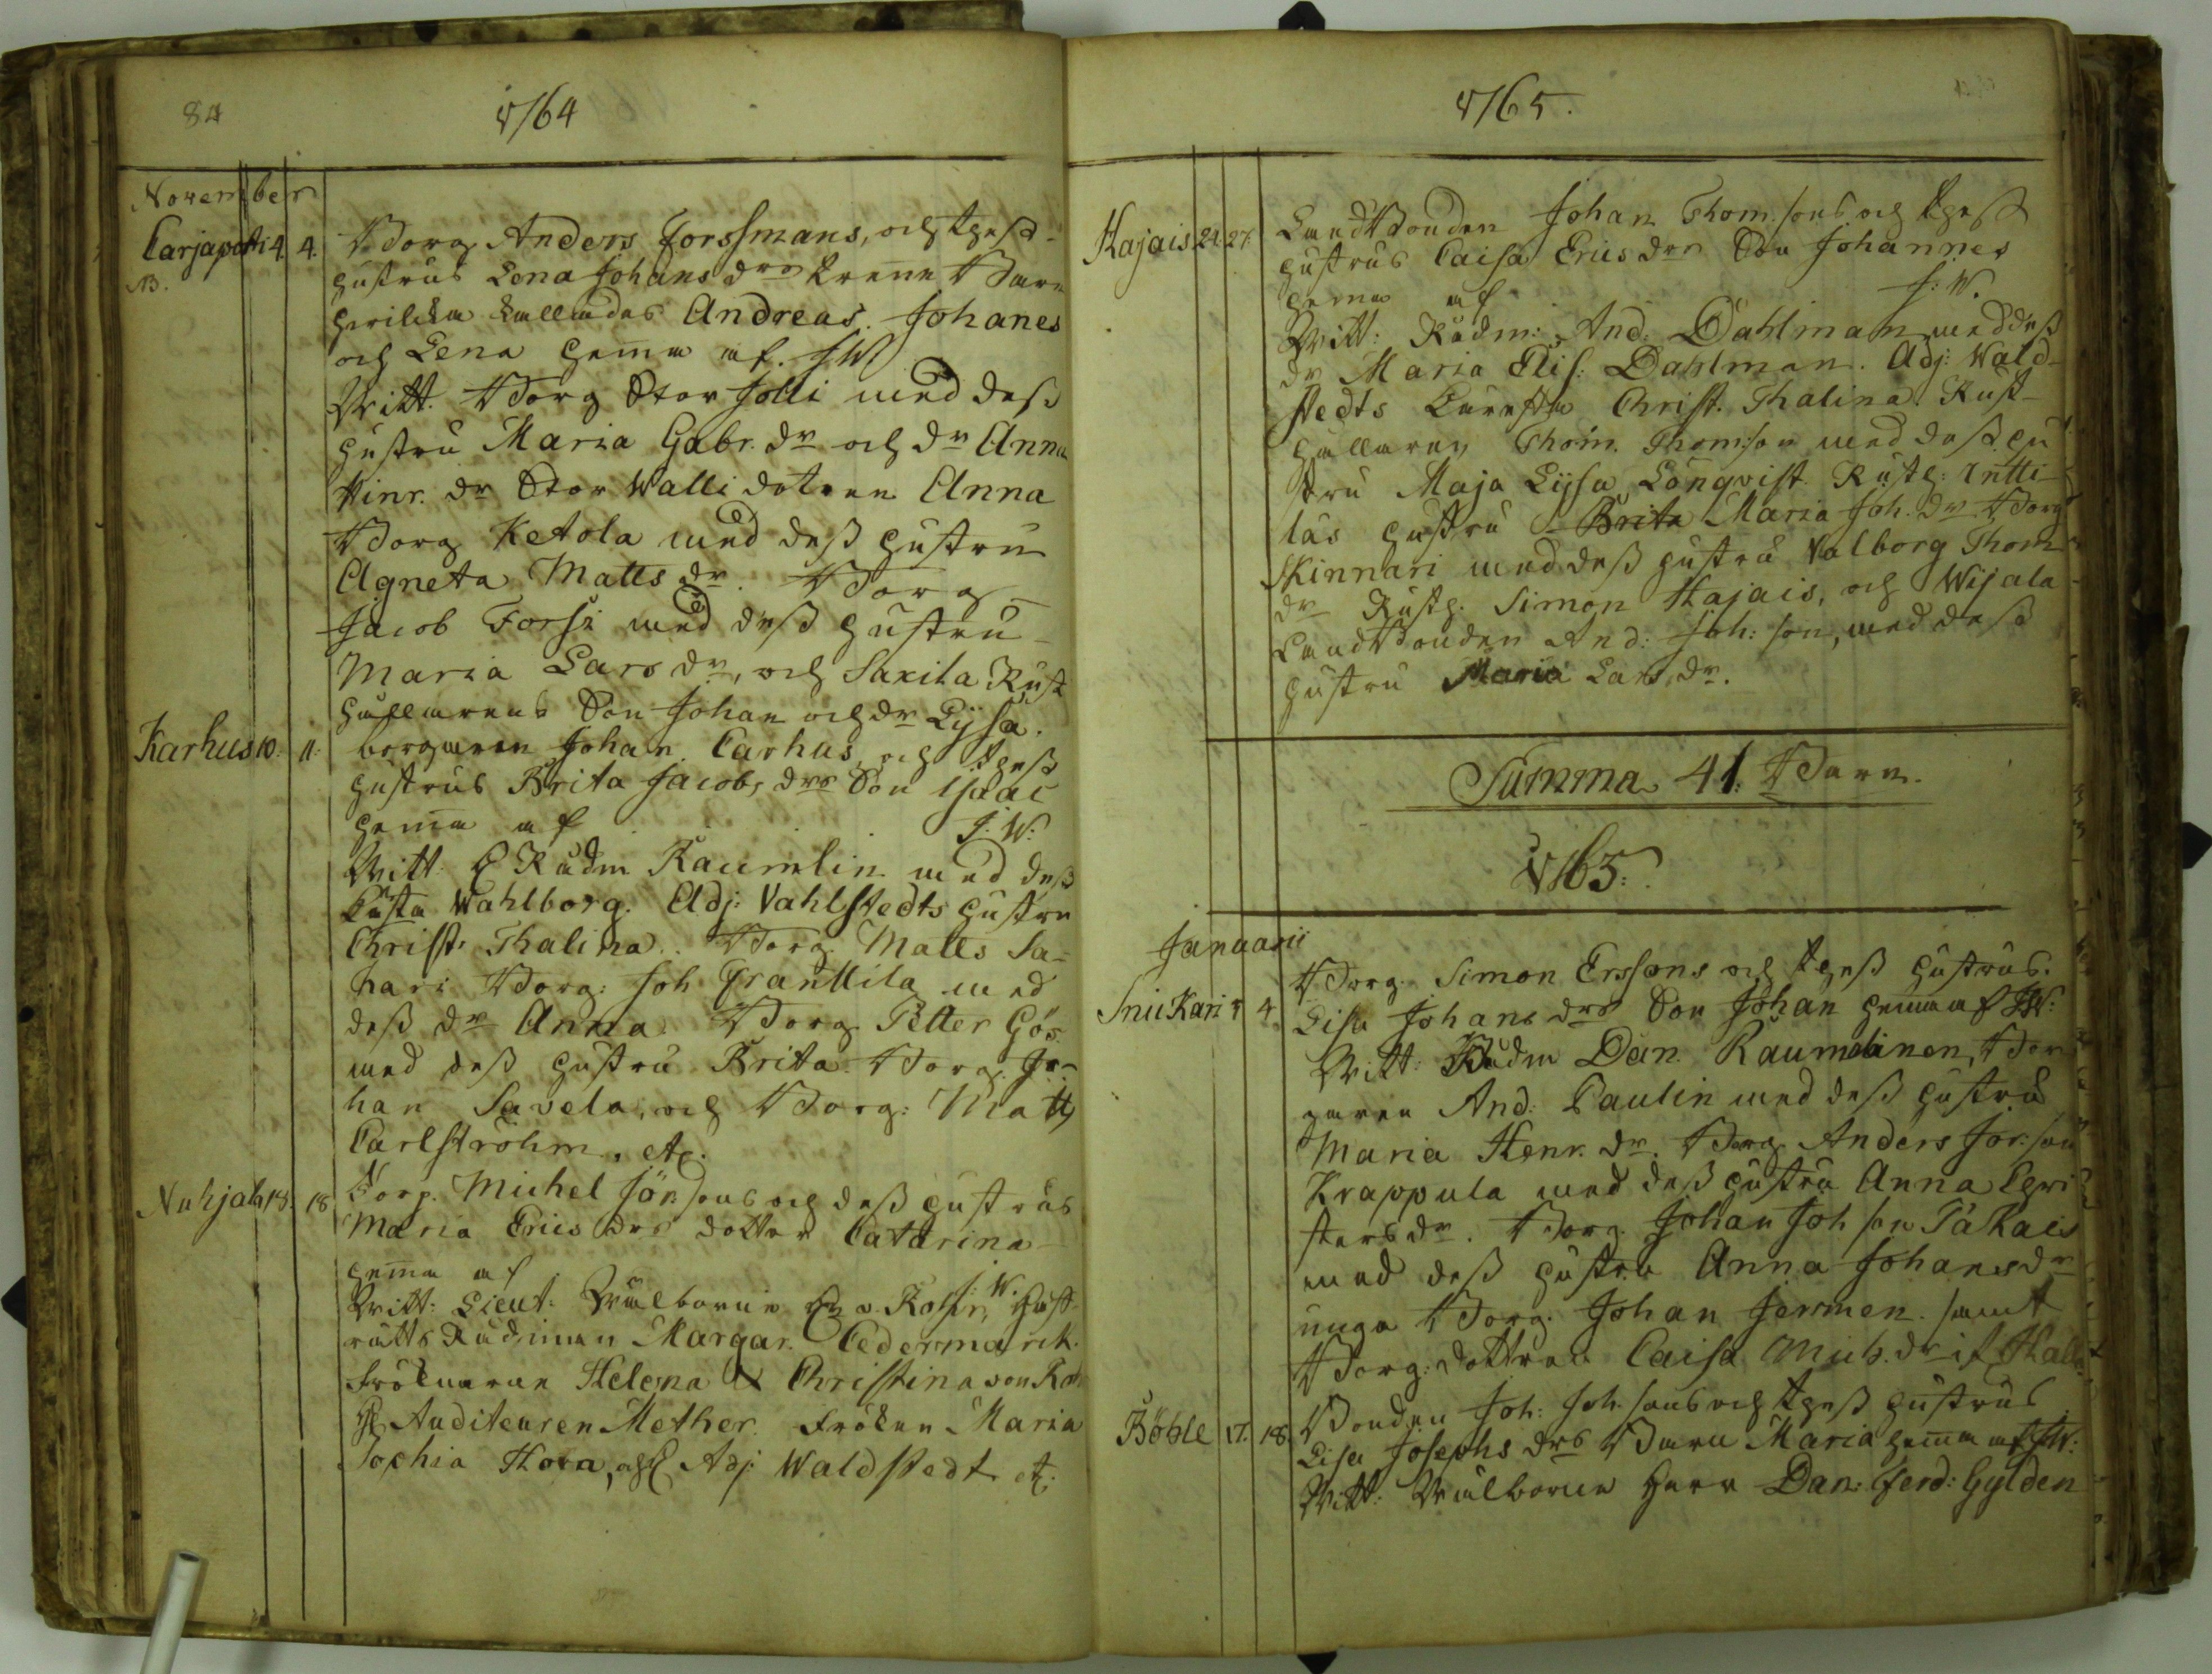 84
1764
November
Carjapatti 4. 4. Borg Anders Forssmans, och thess
B. hustrus Lena Johans drs trenne Barn
hwilcka kallades Andreas. Johanes
och Lena hema af. J W
Witt. Borg Stor Jolli med dess
hustru Maria Gabr. dr och dr Anna
Hinr. dr Stor Walli dotren Anna
Borg Ketola med dess hustru
Agneta Matts dr. Borg
Jacob Forsi med dess hustru
Maria Lars dr, och Saxila Rust
hållarens Son Johan och dr Lijsa.
Karhus 10. 11. borgaren Johan Carhus, och thess
hustrus Brita Jacobs drs Son Isaac
hema af J. W.
Witt. Rådm Raumelin med dess
Wahlborg. Adj: Vahlstedts hustru
Christ. Thalina. Borg Matts Sa-
hari Borg: Joh Franttila med
dess dr Anna. Borg Petter Gös
med dess hustru Brita. Borg. Jo-
han Savela, och Borg: Matts
Carlströhm, etc.
Nuhjala 18. 18 Torp. Michel Jönsons och dess hustrus
Maria Erics drs dotter Catarina
hema af J: W.
Witt: Lieut: Wälborne H v. Rohr, Hof-
rätts Rådinnan Margar. Cedermarck.
Fröknarna Helena & Christina von Roh
H Auditeuren Mether. Fröken Maria
Sophia Horn, och H Adj: Waldstedt etc:
1765.
Hajais 21. 27. LandBonden Johan Thom. sons och thess
hustrus Caisa Erics drs Son Johannes
hema af J: W.
Witt: Rådm: And: Dahlman med dess
dr Maria Elis: Dahlman. Adj: Wald-
stedts Christ. Thalina. Rust-
hållaren Thom. Thomson med dess hu
stru Maja Lijsa Lönqvist. Rusth: Intti-
las hustru Brita Maria Joh. dr Borg
Skinnari med dess hustru Valborg Thom
dr Rusth. Simon Hajais, och Wijala
LandBonden And: Joh: son, med dess
hustru Maria Lars dr.
Summa 41: Barn.
1765:
Januarii
SniiKari 4 Borg. Simon Erssons och thess hustrus
Lisa Johans drs Son Johan hema af JW:
Witt: Rådm Dan. Raumelinen, Bor
garen And: Paulin med dess hustru
Maria Henr. dr. Borg Anders Jör: son
Krappula med dess hustru Anna Chri
sters dr. Borg. Johan Joh son Takais
med dess hustru Anna Johansdr
unga Borg. Johan Jermen. samt
Borg: dottren Caisa Mich. dr if
Böhle 17. 18. Bonden Joh: Joh. sons och thess hustrus
Lisa Josephs drs Barn Maria hema af JW:
Witt: Wälborne Herr Dan: Ferd: Gylden